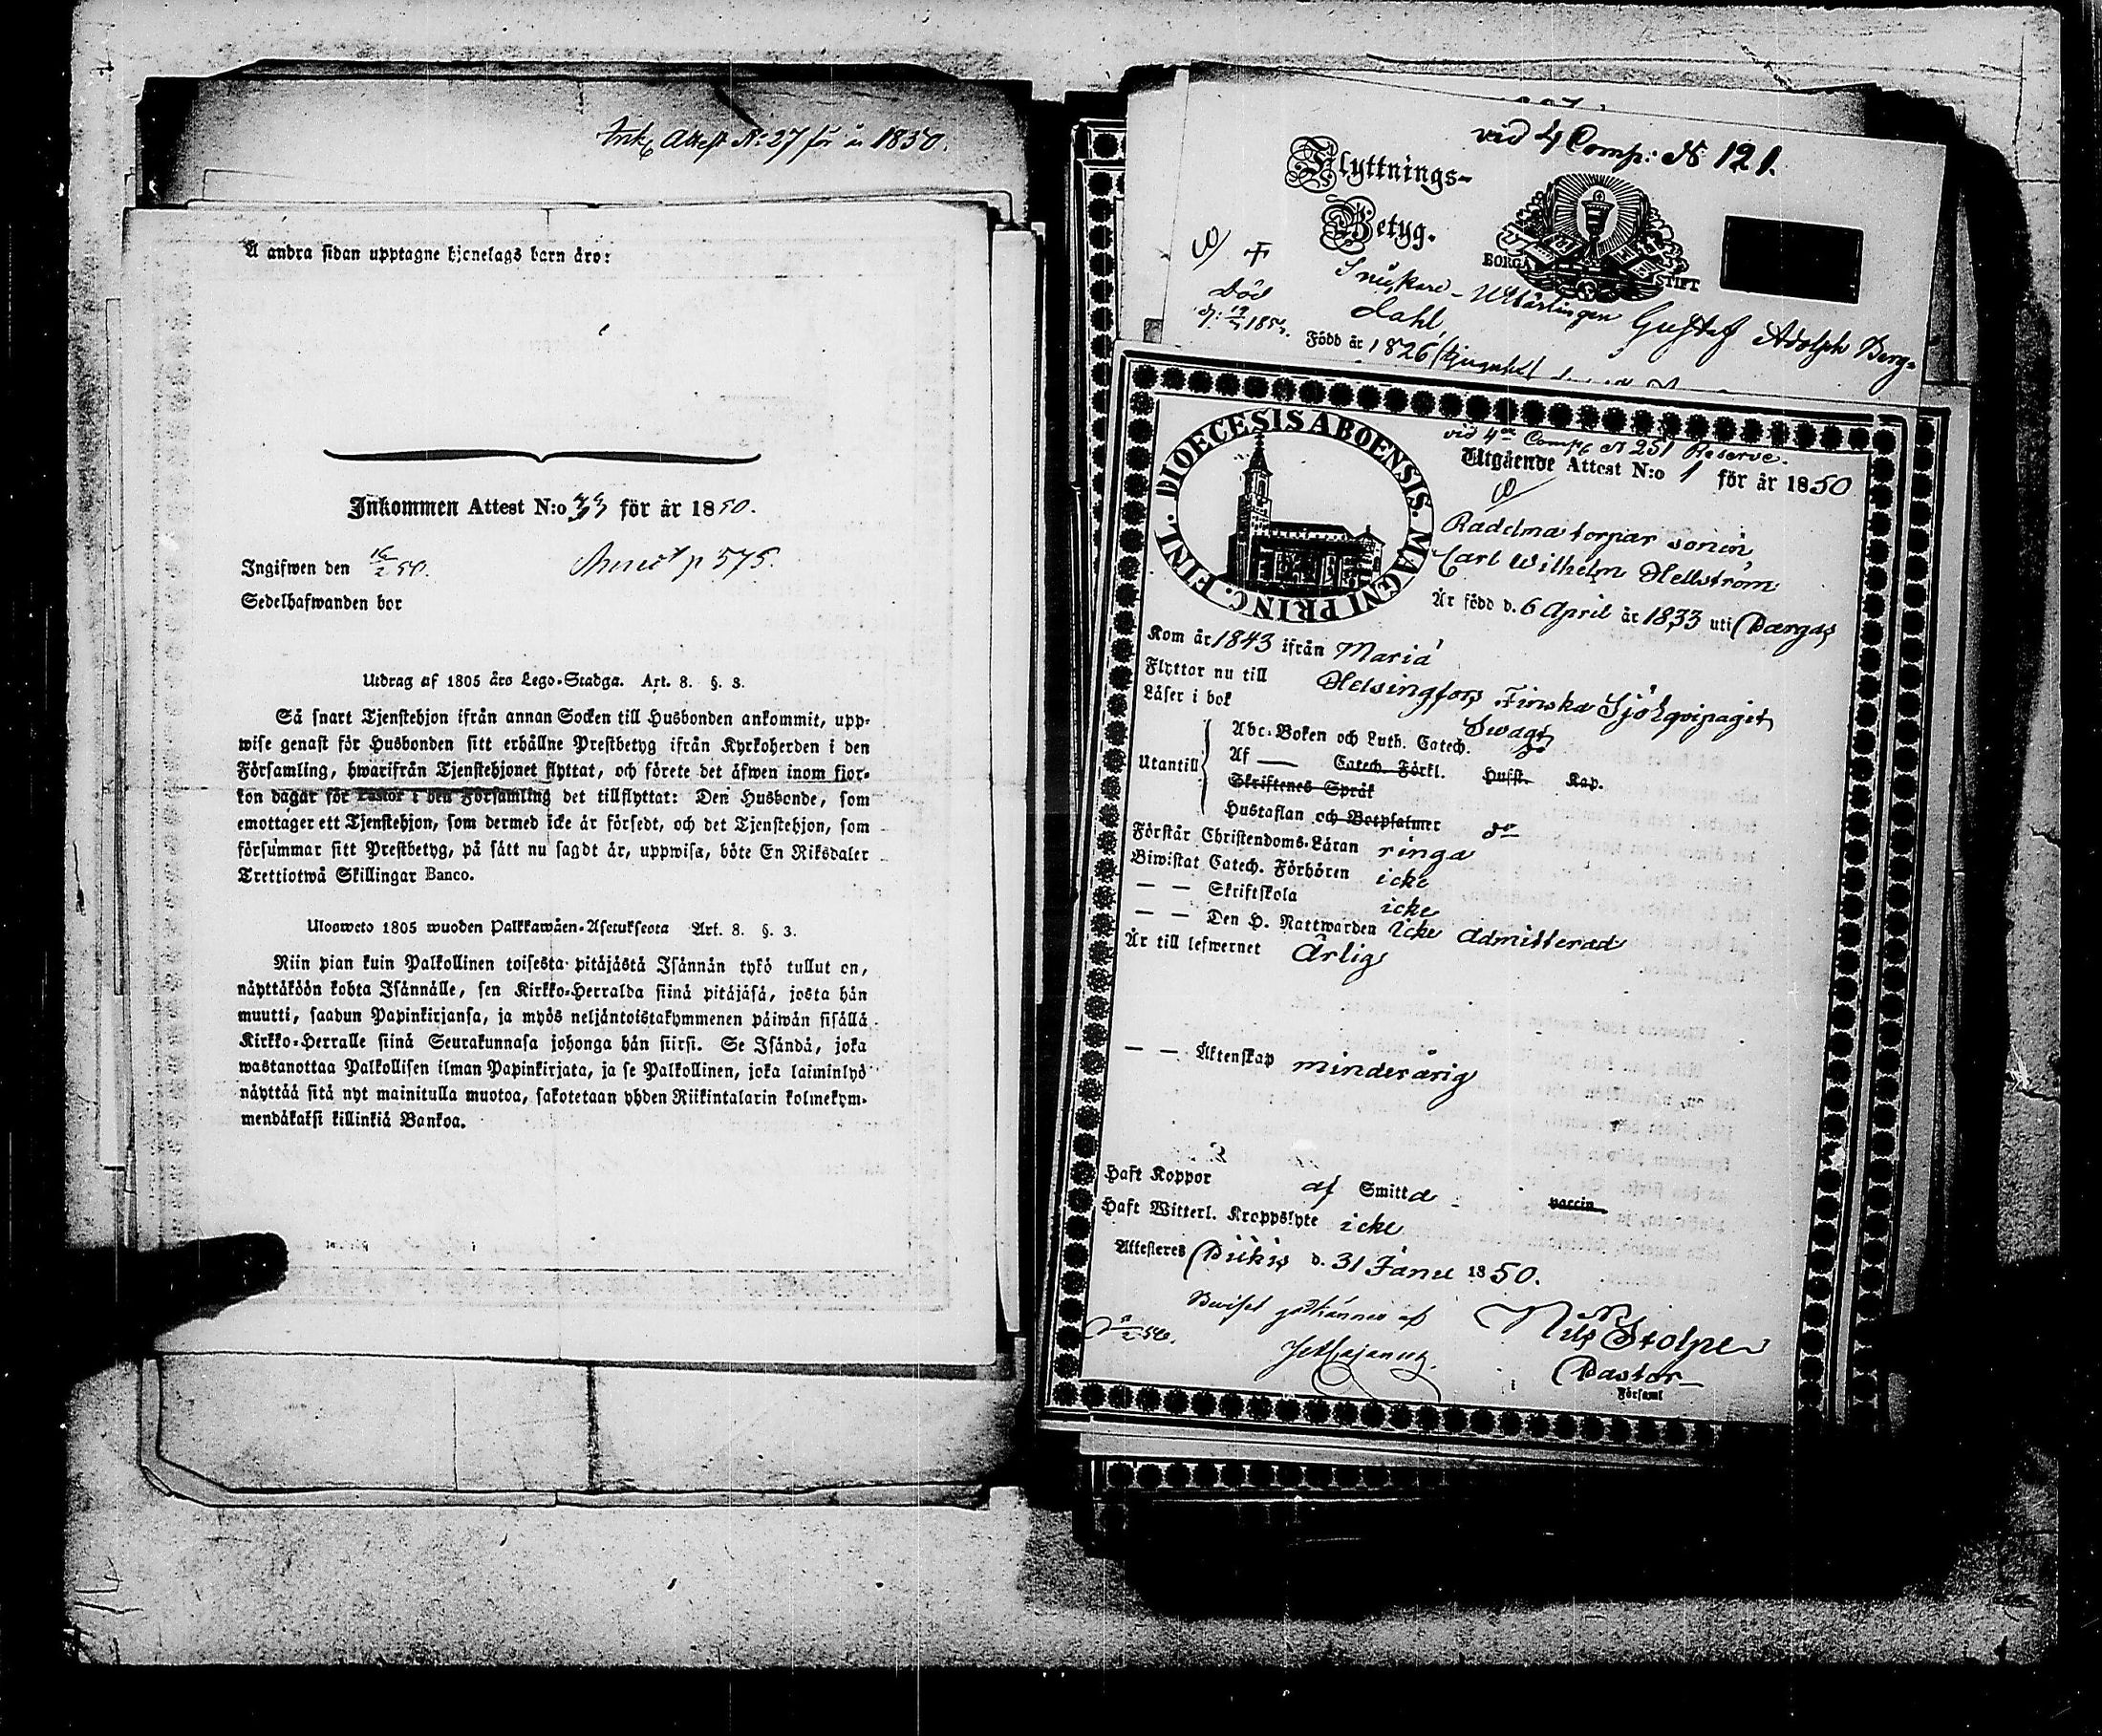 Ink. Attest N: 27 för år 1850.
Å andra sidan upptagne hjonelags barn äro:
Inkommen Attest N:o 33 för år 1850.
Ingifwen den 16/2 50. Annot p 575.
Sedelhafwanden bor
Utdrag af 1805 års Lego-Stadga. Art. 8. §. 3.
Så snart Tjenstehjon ifrån annan Socken till Husbonden ankommit, upp-
wise genast för Husbonden sitt erhållne Prestbetyg ifrån Kyrkoherden i den
Församling, hwarifrån Tjenstehjonet flyttat, och förete det äfwen inom fjor-
ton dagar för Pastor i den Församling det tillflyttat: Den Husbonde, som
emottager ett Tjenstehjon, som dermed icke är försedt, och det Tjenstehjon, som
försummar sitt Prestbetyg, på sätt nu sagdt är, uppwisa, böte En Riksdaler
Trettiotwå Skillingar Banco.
Uloosweto 1805 wuoden Palkkawäen-Asetuksesta Art. 8. §. 3.
Niin pian kuin Palkollinen toisesta pitäjästä Isännän tykö tullut on,
näyttäköön kohta Isännälle, sen Kirkko-Herralda siinä pitäjäsä, josta hän
muutti, saadun Papinkirjansa, ja myös neljäntoistakymmenen päiwän sisällä
Kirkko-Herralle siinä Seurakunnasa johonga hän siirsi. Se Isändä, joka
wastanottaa Palkollisen ilman Papinkirjata, ja se Palkollinen, joka laiminlyö
näyttää sitä nyt mainitulla muotoa, sakotetaan yhden Riikintalarin kolmekym-
mendäkaksi killinkiä Bankoa.
vid 4 Comp: N 121.
Flyttnings-
Betyg.
BORGÅ STIFT
Död
Snickare-Lärlingen Gustaf Adolph Berg-
dahl,
Född år 1826
DIOECESIS ABOENSIS. MAGNI PRINC. FINL.
vid 4de Comp. N 251 Reserve.
Utgående Attest N:o 1 för år 1850
Radelma torpar sonen
Carl Wilhelm Hellström
Är född d. 6 April år 1833 uti Pargas
Kom år 1843 ifrån Mariæ
Flyttar nu till Helsingfors Finska Sjöeqvipaget
Läser i bok Swagt
Abc-Boken och Luth. Catech. do
Utantill Af — Catech. Förkl. Husst. Kap.
Skriftenes Språk
Hustaflan och Botpsalmer do
Förstår Christendoms-Läran ringa
Biwistat Catech. Förhören icke
— — Skriftskola icke
— — Den H. Nattwarden icke admitterad
Är till lefwernet Ärlig
— — Äktenskap minderårig
Haft Koppor af Smitta vaccin
Haft Witterl. Kroppslyte icke
Attesteres Piikis d. 31 Janu 1850.
Nils Stolpe
Pastor
i Församl